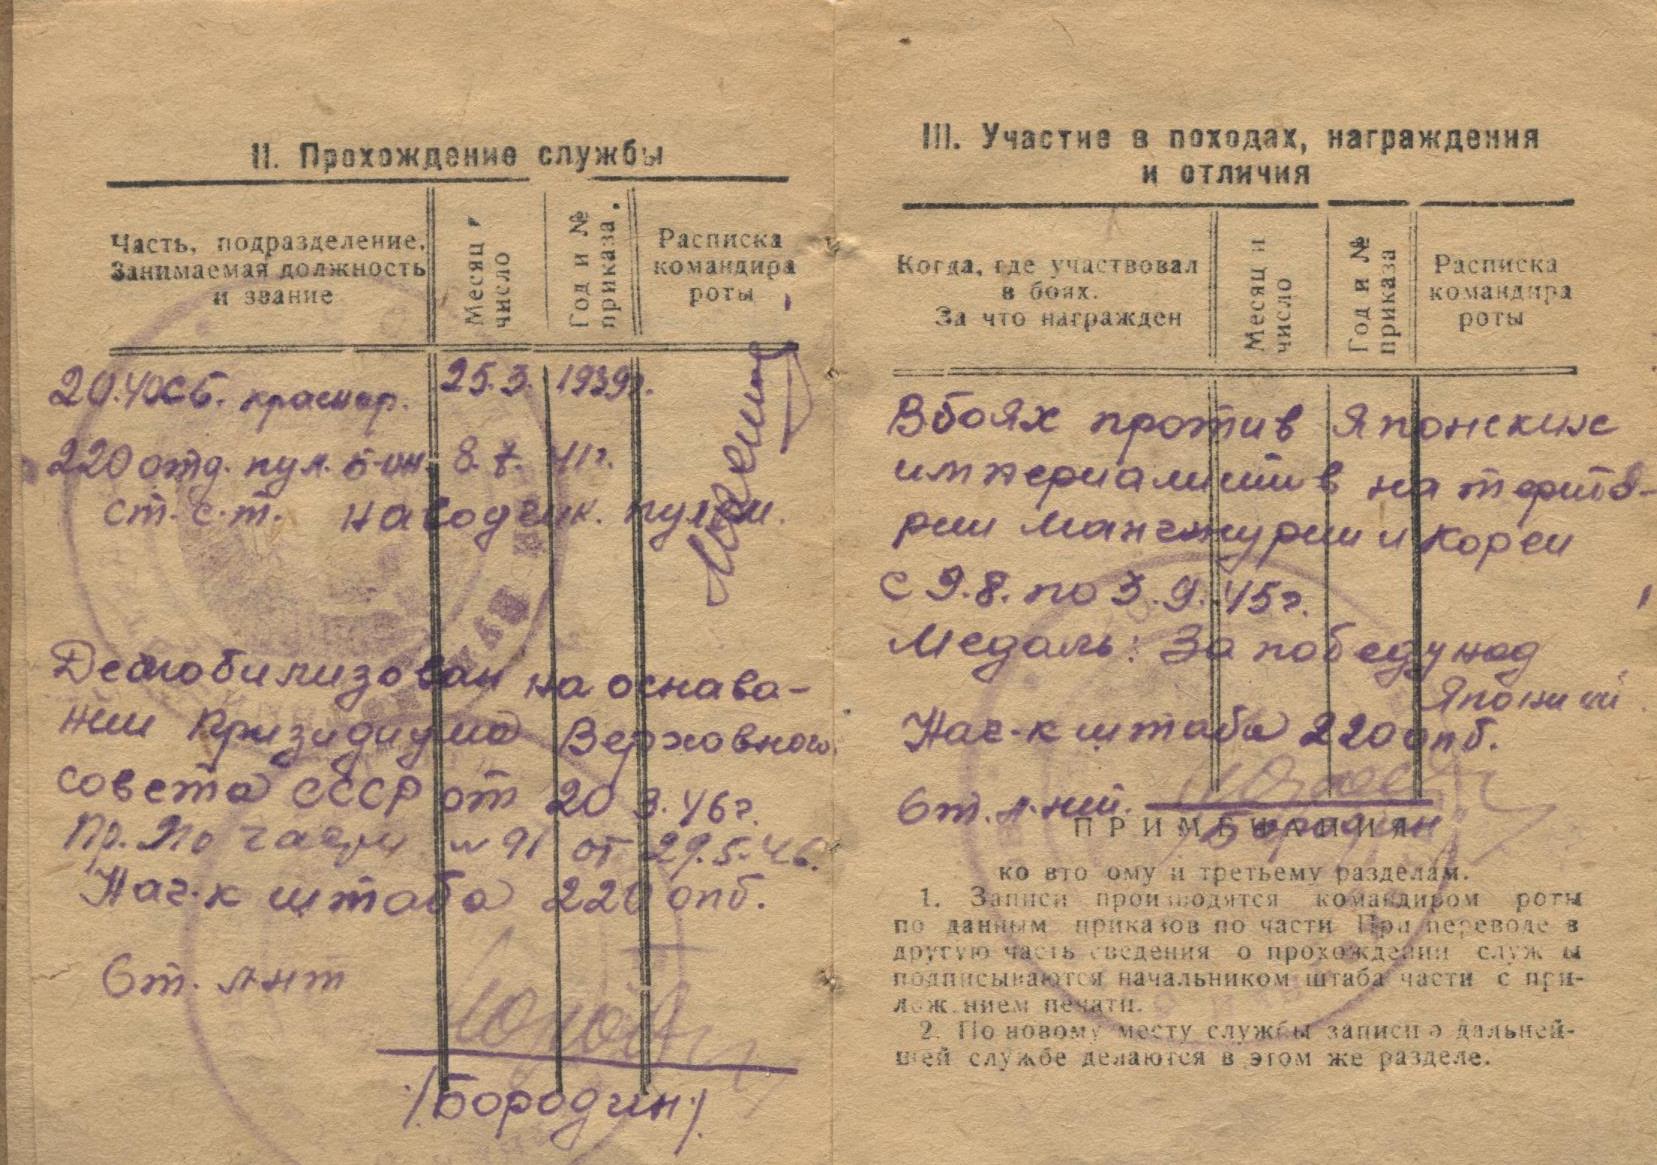 II. Прохождение службы
Часть, подразделение.
Занимаемая должность
и звание
Месяц и
число
Год и №
приказа.
Расписка
командира
роты
20. 40СБ. красноар. 25.3. 1939г.
220 отд. пул. б-он. 8.7. 41г.
ст. с-т. наводчик. пулем.
Демобилизован на основа-
нии Призидиума Верховного
совета СССР от 20 3.46г.
Пр. По части № 91 от 29.5.46.
Нач-к штаба 220 опб.
Ст. л-нт
/Бородин/
III. Участие в походах, награждения
и отличия
Когда, где участвовал
в боях.
За что награжден
Месяц и
число
Год и №
приказа
Расписка
командира
роты
В боях против Японских
империалистив на терито-
рии Манчжурии и Кореи
с 9.8. по 3.9.45г.
Медаль: За победу над
Японией
Нач-к штаба 220 опб.
Ст. л-нт.
/Бородин/
ПРИМЕЧАНИЯ
ко вто ому и третьему разделам.
1. Записи производятся командиром роты
по данным приказов по части При переводе в
другую часть сведения о прохождении служ ы
подписываются начальником штаба части с при-
лож нием печати.
2. По новому месту службы записи о дальней-
шей службе делаются в этом же разделе.